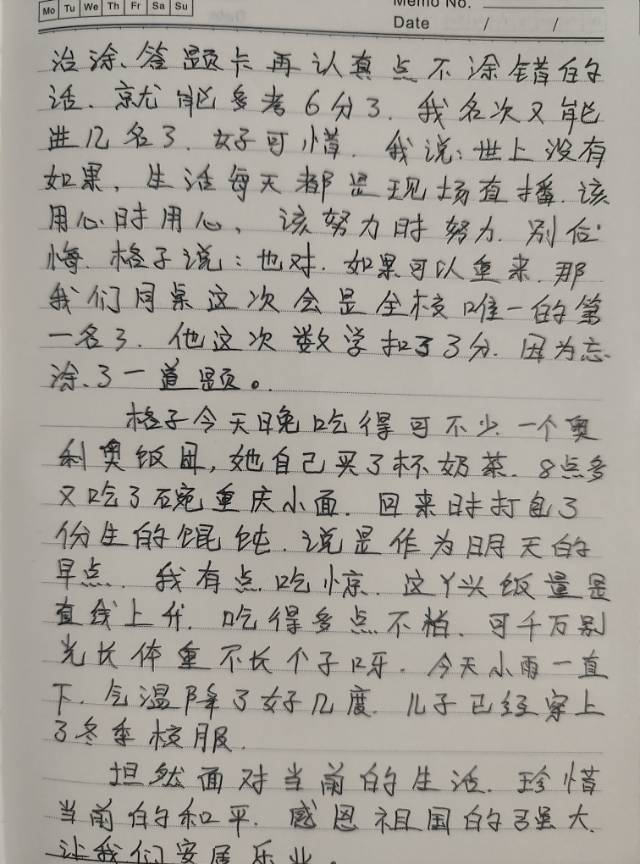 Mo Tu We Th Fr Sa Su
Memo No.
Date / /
治涂、答题卡再认真点不涂错的
话、就能多考6分了. 我名次又能
进几名了. 好可惜. 我说: 世上没有
如果, 生活每天都是现场直播. 该
用心时用心、该努力时努力. 别后
悔. 格子说: 也对. 如果可以重来. 那
我们同桌这次会是全校唯一的第
一名了. 他这次数学扣了3分. 因为忘
涂、了一道题。
格子今天晚吃得可不少. 一个奥
利奥饭团, 她自己买了杯奶茶. 8点多
又吃了碗重庆小面. 回来时打包了
份生的馄饨. 说是作为明天的
早点. 我有点吃惊. 这丫头饭量是
直线上升. 吃得多点不怕. 可千万别
光长体重不长个子呀. 今天小雨一直
下. 气温降了好几度. 儿子已经穿上
了冬季校服.
坦然面对当前的生活. 珍惜
当前的和平. 感恩祖国的强大.
让我们安居乐业。